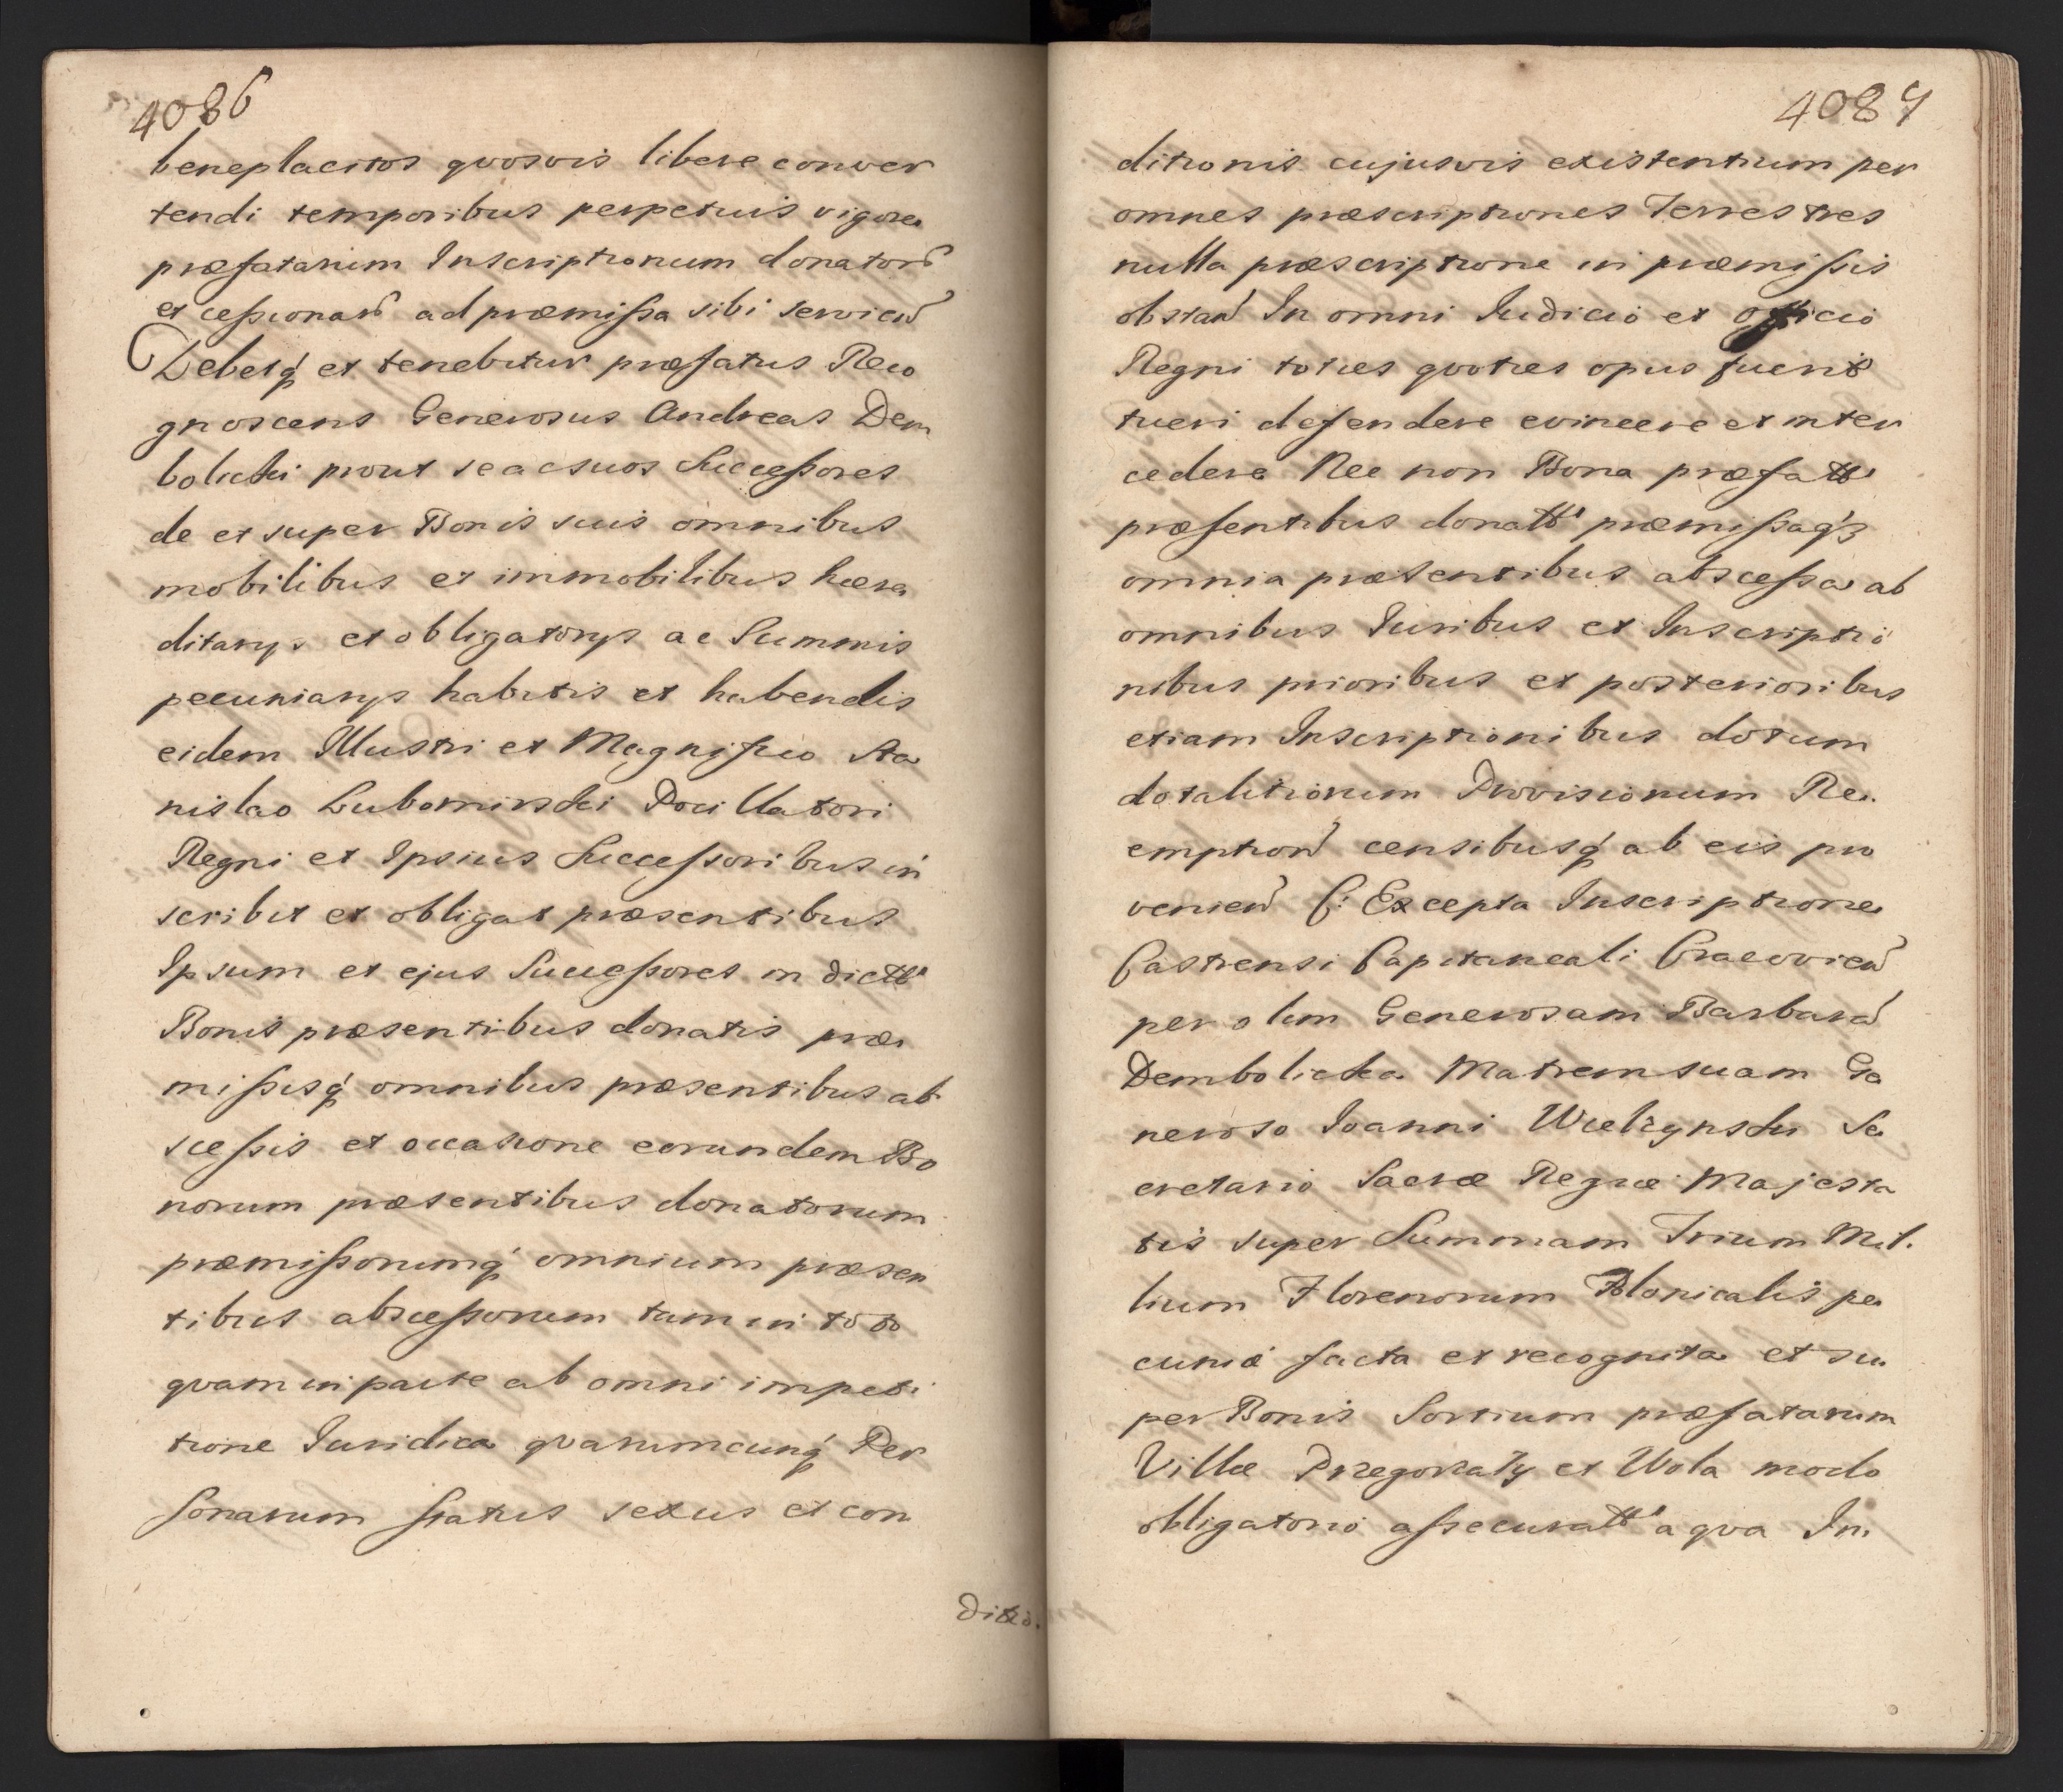 4086
beneplacitos qvosvis libere conver
tendi temporibus perpetuis vigore
præfatarum Inscriptionum donatoru
et cessionaru ad præmissa sibi servien
Debetq́ et tenebitur præfatus Reco
gnoscens Generosus Andreas Dem
bolicki prout se ac suos Successores
de et super Bonis suis omnibus
mobilibus et immobilibus hære
ditarys et obligatorys ac Summis
pecuniarys habitis et habendis
eidem Illustri et Magnifico Sta
nislao Lubomirski Pocillatori
Regni et Ipsius Successoribus in
scribit et obligat præsentibus
Ipsum et ejus Successores in dictis
Bonis præsentibus donatis præ
missisq́ omnibus præsentibus ab
scessis et occasione eorundem Bo
norum præsentibus donatorum
præmissorumq́ omnium præsen
tibus abscessorum tam in toto
qvam in parte ab omni impeti
tione Juridica qvarumcunq́ Per
sonarum status sexus et con
ditio.
4087
ditionis cujusvis existentium per
omnes præscriptiones Terrestres
nulla præscriptione in præmissis
obstan In omni Judicio et officio
Regni toties qvoties opus fuerit
tueri defendere evincere et inter
cedere Nec non Bona præfatta
præsentibus donatta præmissaq́3
omnia præsentibus abscessa ab
omnibus Juribus et Inscriptio
nibus prioribus et posterioribus
etiam Inscriptionibus dotum
dotalitiorum Provisionum Re
emption censibusq́ ab eis pro
venien (: Excepta Inscriptione
Castrensi Capitaneali Cracovien
per olim Generosam Barbara
Dembolicka Matrem suam Ge
neroso Joanni Wielizynski Se
cretario Sacræ Regiæ Majesta
tis super Summam Trium Mil
lium Florenorum Polonicalis pe
cuniæ facta et recognita et su
per Bonis Sortium præfatarum
Villæ Przegorzaly et Wola modo
obligatorio assecuratta a qva In